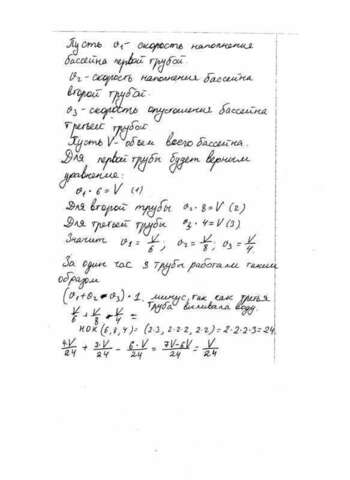 Пусть v₁ - скорость наполнения
бассейна первой трубой.
v₂ - скорость наполнения бассейна
второй трубой.
v₃ - скорость опустошения бассейна
третьей трубой
Пусть V - объем всего бассейна.
Для первой трубы будет верным
уравнение:
v₁ · 6 = V (1)
Для второй трубы v₂ · 8 = V (2)
Для третьей трубы v₃ · 4 = V (3)
Значит v₁ = V/6; v₂ = V/8; v₃ = V/4.
За один час 3 трубы работали таким
образом
(v₁ + v₂ - v₃) · 1, минус, так как третья
труба выливала воду.
V/6 + V/8 - V/4 =
НОК (6, 8, 4) = (2·3, 2·2·2, 2·2) = 2·2·2·3 = 24.
4V/24 + 3V/24 - 6V/24 = 7V-6V/24 = V/24